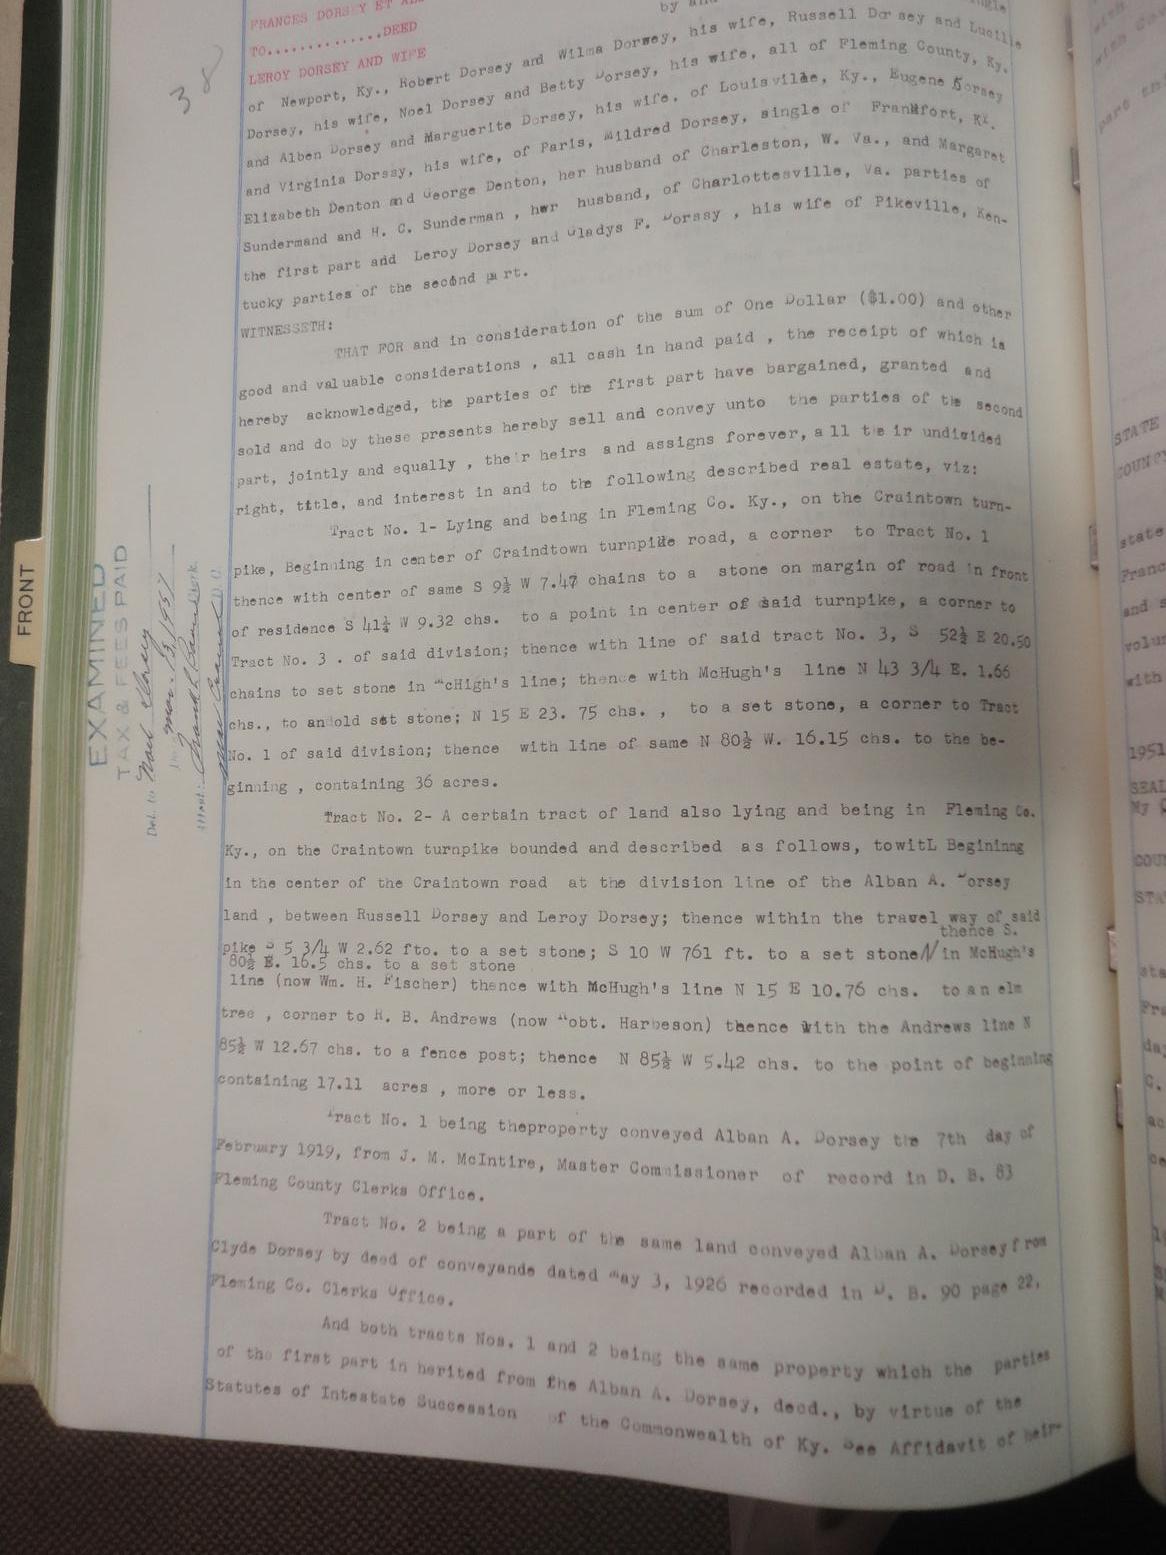 FRANCES DORSEY ET AL
by and
TO..............DEED
LEROY DORSEY AND WIFE
38
of Newport, Ky., Robert Dorsey and Wilma Dorwey, his wife, Russell Dorsey and Lucille
Dorsey, his wife, Noel Dorsey and Betty Dorsey, his wife, all of Fleming County, Ky.
and Alben Dorsey and Marguerite Dorsey, his wife, of Louisville, Ky., Eugene Dorsey
and Virginia Dorssy, his wife, of Paris, Mildred Dorsey, single of Frankfort, Ky.
Elizabeth Denton and George Denton, her husband of Charleston, W. Va., and Margaret
Sundermand and H. C. Sunderman , her husband, of Charlottesville, Va. parties of
the first part and Leroy Dorsey and Gladys F. Dorssy , his wife of Pikeville, Ken-
tucky parties of the second part.
WITNESSETH:
THAT FOR and in consideration of the sum of One Dollar ($1.00) and other
good and valuable considerations , all cash in hand paid , the receipt of which is
hereby acknowledged, the parties of the first part have bargained, granted and
sold and do by these presents hereby sell and convey unto the parties of the second
part, jointly and equally , their heirs and assigns forever, all their undivided
right, title, and interest in and to the following described real estate, viz:
Tract No. 1- Lying and being in Fleming Co. Ky., on the Craintown turn-
pike, Beginning in center of Craindtown turnpike road, a corner to Tract No. 1
thence with center of same S 9½ W 7.47 chains to a stone on margin of road in front
of residence S 41¼ W 9.32 chs. to a point in center of said turnpike, a corner to
Tract No. 3 . of said division; thence with line of said tract No. 3, S 52½ E 20.50
chains to set stone in McHigh's line; thence with McHugh's line N 43 3/4 E. 1.66
chs., to an old set stone; N 15 E 23. 75 chs. , to a set stone, a corner to Tract
No. 1 of said division; thence with line of same N 80½ W. 16.15 chs. to the be-
ginning , containing 36 acres.
Tract No. 2- A certain tract of land also lying and being in Fleming Co.
Ky., on the Craintown turnpike bounded and described as follows, towitL Begininng
in the center of the Craintown road at the division line of the Alban A. Dorsey
land , between Russell Dorsey and Leroy Dorsey; thence within the travel way of said
thence S.
pike S 5 3/4 W 2.62 fto. to a set stone; S 10 W 761 ft. to a set stone in McHugh's
80½ E. 16.5 chs. to a set stone
line (now Wm. H. Fischer) thence with McHugh's line N 15 E 10.76 chs. to an elm
tree , corner to R. B. Andrews (now Robt. Harbeson) thence with the Andrews line N
85½ W 12.67 chs. to a fence post; thence N 85½ W 5.42 chs. to the point of beginning
containing 17.11 acres , more or less.
Tract No. 1 being theproperty conveyed Alban A. Dorsey the 7th day of
February 1919, from J. M. McIntire, Master Commissioner of record in D. B. 83
Fleming County Clerks Office.
Tract No. 2 being a part of the same land conveyed Alban A. Dorsey from
Clyde Dorsey by deed of conveyande dated May 3, 1926 recorded in D. B. 90 page 22,
Fleming Co. Clerks Office.
And both tracts Nos. 1 and 2 being the same property which the parties
of the first part in herited from the Alban A. Dorsey, decd., by virtue of the
Statutes of Intestate Succession of the Commonwealth of Ky. See Affidavit of heir-
FRONT
EXAMINED
TAX & FEES PAID
Del. to Noel Dorsey
STATE
COUNTY
state
and s
with
1951
SEAL
My
COUN